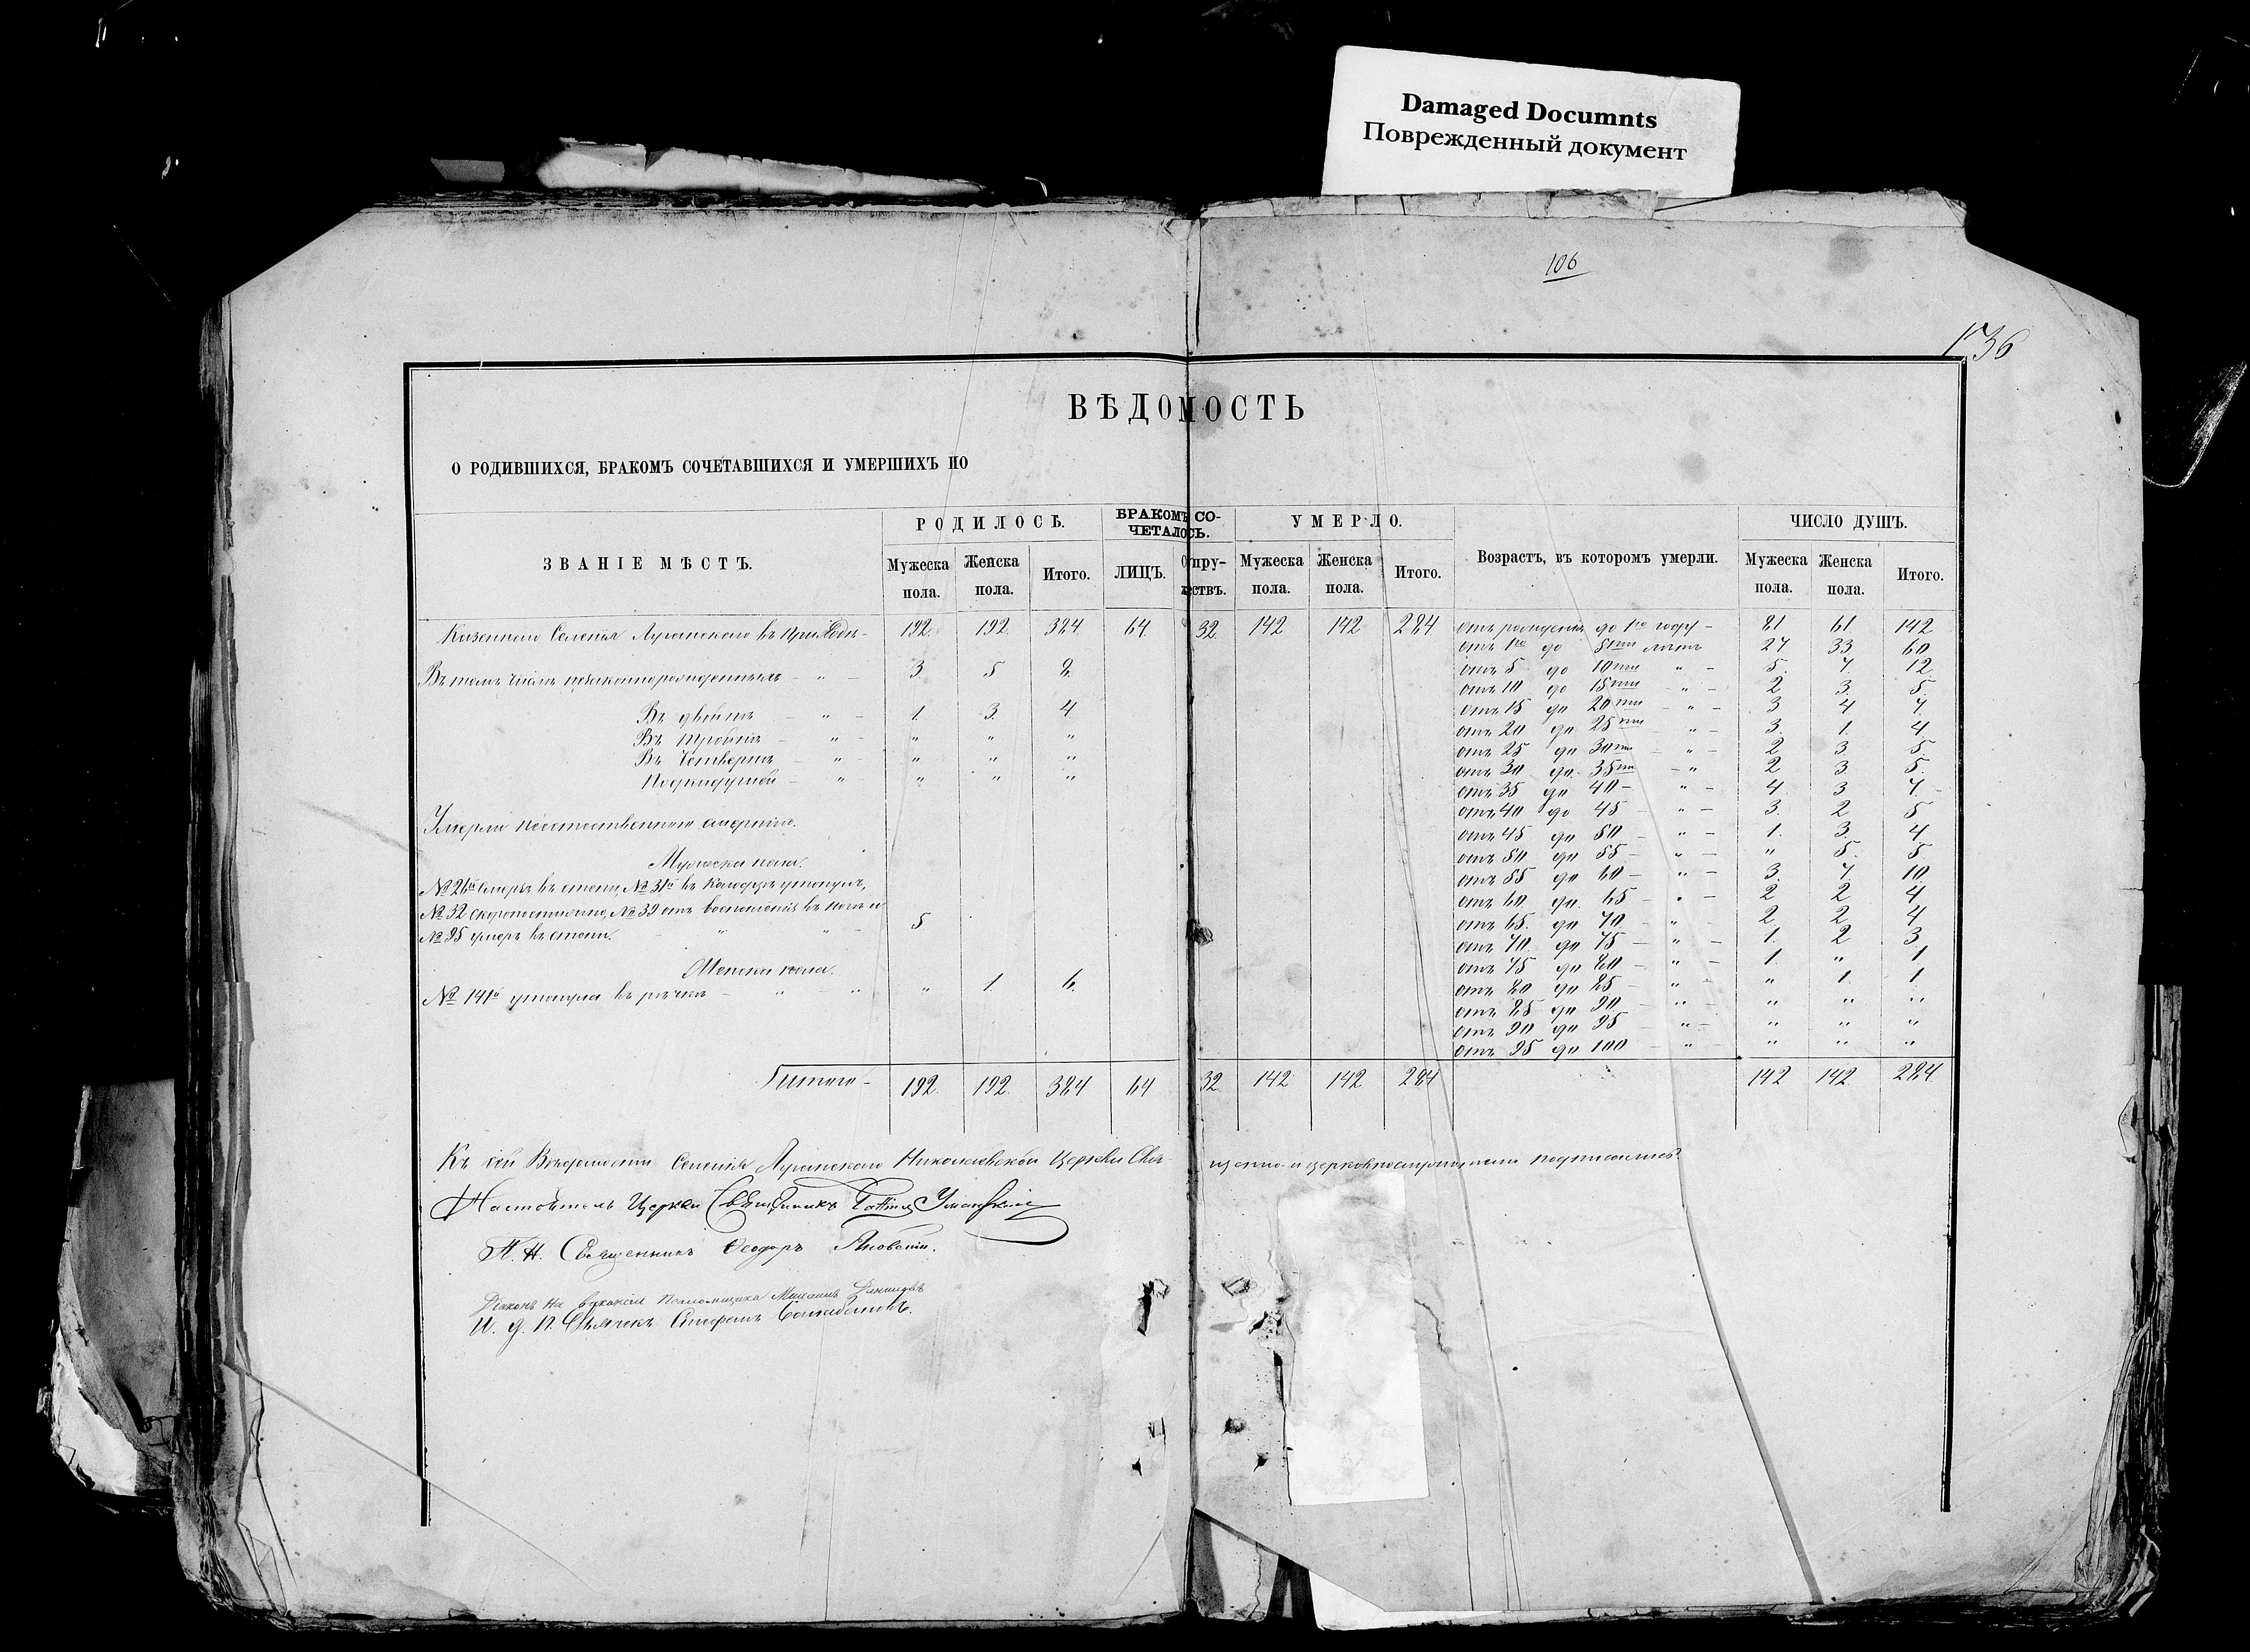 Damaged Documnts
Поврежденный документ
106
136
ВѢДОМОСТЬ
О РОДИВШИХСЯ, БРАКОМЪ СОЧЕТАВШИХСЯ И УМЕРШИХЪ ПО
ЗВАНІЕ МѢСТЪ. РОДИЛОСЬ. БРАКОМЪ СОЧЕТАЛОСЬ. УМЕРЛО. Возрастъ, въ которомъ умерли. ЧИСЛО ДУШЪ.
Мужеска пола. Женска пола. Итого. ЛИЦЪ. Супружествъ. Мужеска пола. Женска пола. Итого. Мужеска пола. Женска пола. Итого.
Казеннаго Селенія Луганскаго въ приходѣ - 192. 192. 384 64. 32 142 142 284 отъ рожденія до 1го году - 81 61 142
отъ 1го до 5ти лѣтъ 27 33 60
Въ томъ числѣ незаконнорожденныхъ - " - 3. 5. 8. отъ 5 до 10ти " - 5. 7 12
отъ 10 до 15ти - " - 2 3. 5.
Въ двойнѣ - " - 1. 3. 4 отъ 15 до 20ти - " - 3 4 7
Въ тройнѣ - " - " " " отъ 20 до 25ти " - 3. 1. 4
Въ четвернѣ - " - " " " отъ 25 до 30ти - " - 2 3. 5.
Подкидышей - " " " " отъ 30 до 35ти - " 2 3. 5.
отъ 35 до 40 - " - 4 3 7.
Умерли неестественною смертію. отъ 40 до 45 - " - 3. 2 5
отъ 45 до 50 - " - 1. 3. 4
Мужеска пола. отъ 50 до 55 - " - " 5. 5
№ 26й умеръ въ степи, № 31й въ колодцѣ утонулъ, отъ 55 до 60 - " - 3. 7 10.
№ 32 скоропостижно, № 39 отъ воспаленія въ отъ 60 до 65 - " - 2 2 4
№ 95 умеръ въ степи. - " " - 5 отъ 65 до 70 - " - 2 2 4
отъ 70 до 75 - " - 1. 2 3
Женска пола. отъ 75 до 80 - " - 1. " 1
№ 141й утонула въ рѣчкѣ - " " " 1. 6. отъ 80 до 85 - " - " 1. 1.
отъ 85 до 90 - " - " " "
отъ 90 до 95 - " - " " "
отъ 95 до 100 - " - " " "
Итого - 192. 192. 384 64 32 142 142 284 142 142 284
Къ сей Вѣдомости Селенія Луганскаго Николаевской Церкви Священно- и церковнослужители подписались:
Настоятель Церкви Священникъ Уманскій
П. Н. Священникъ Ѳеодоръ Яновскій.
Діаконъ на вакансіи Псаломщика
И. д. П. Стефанъ